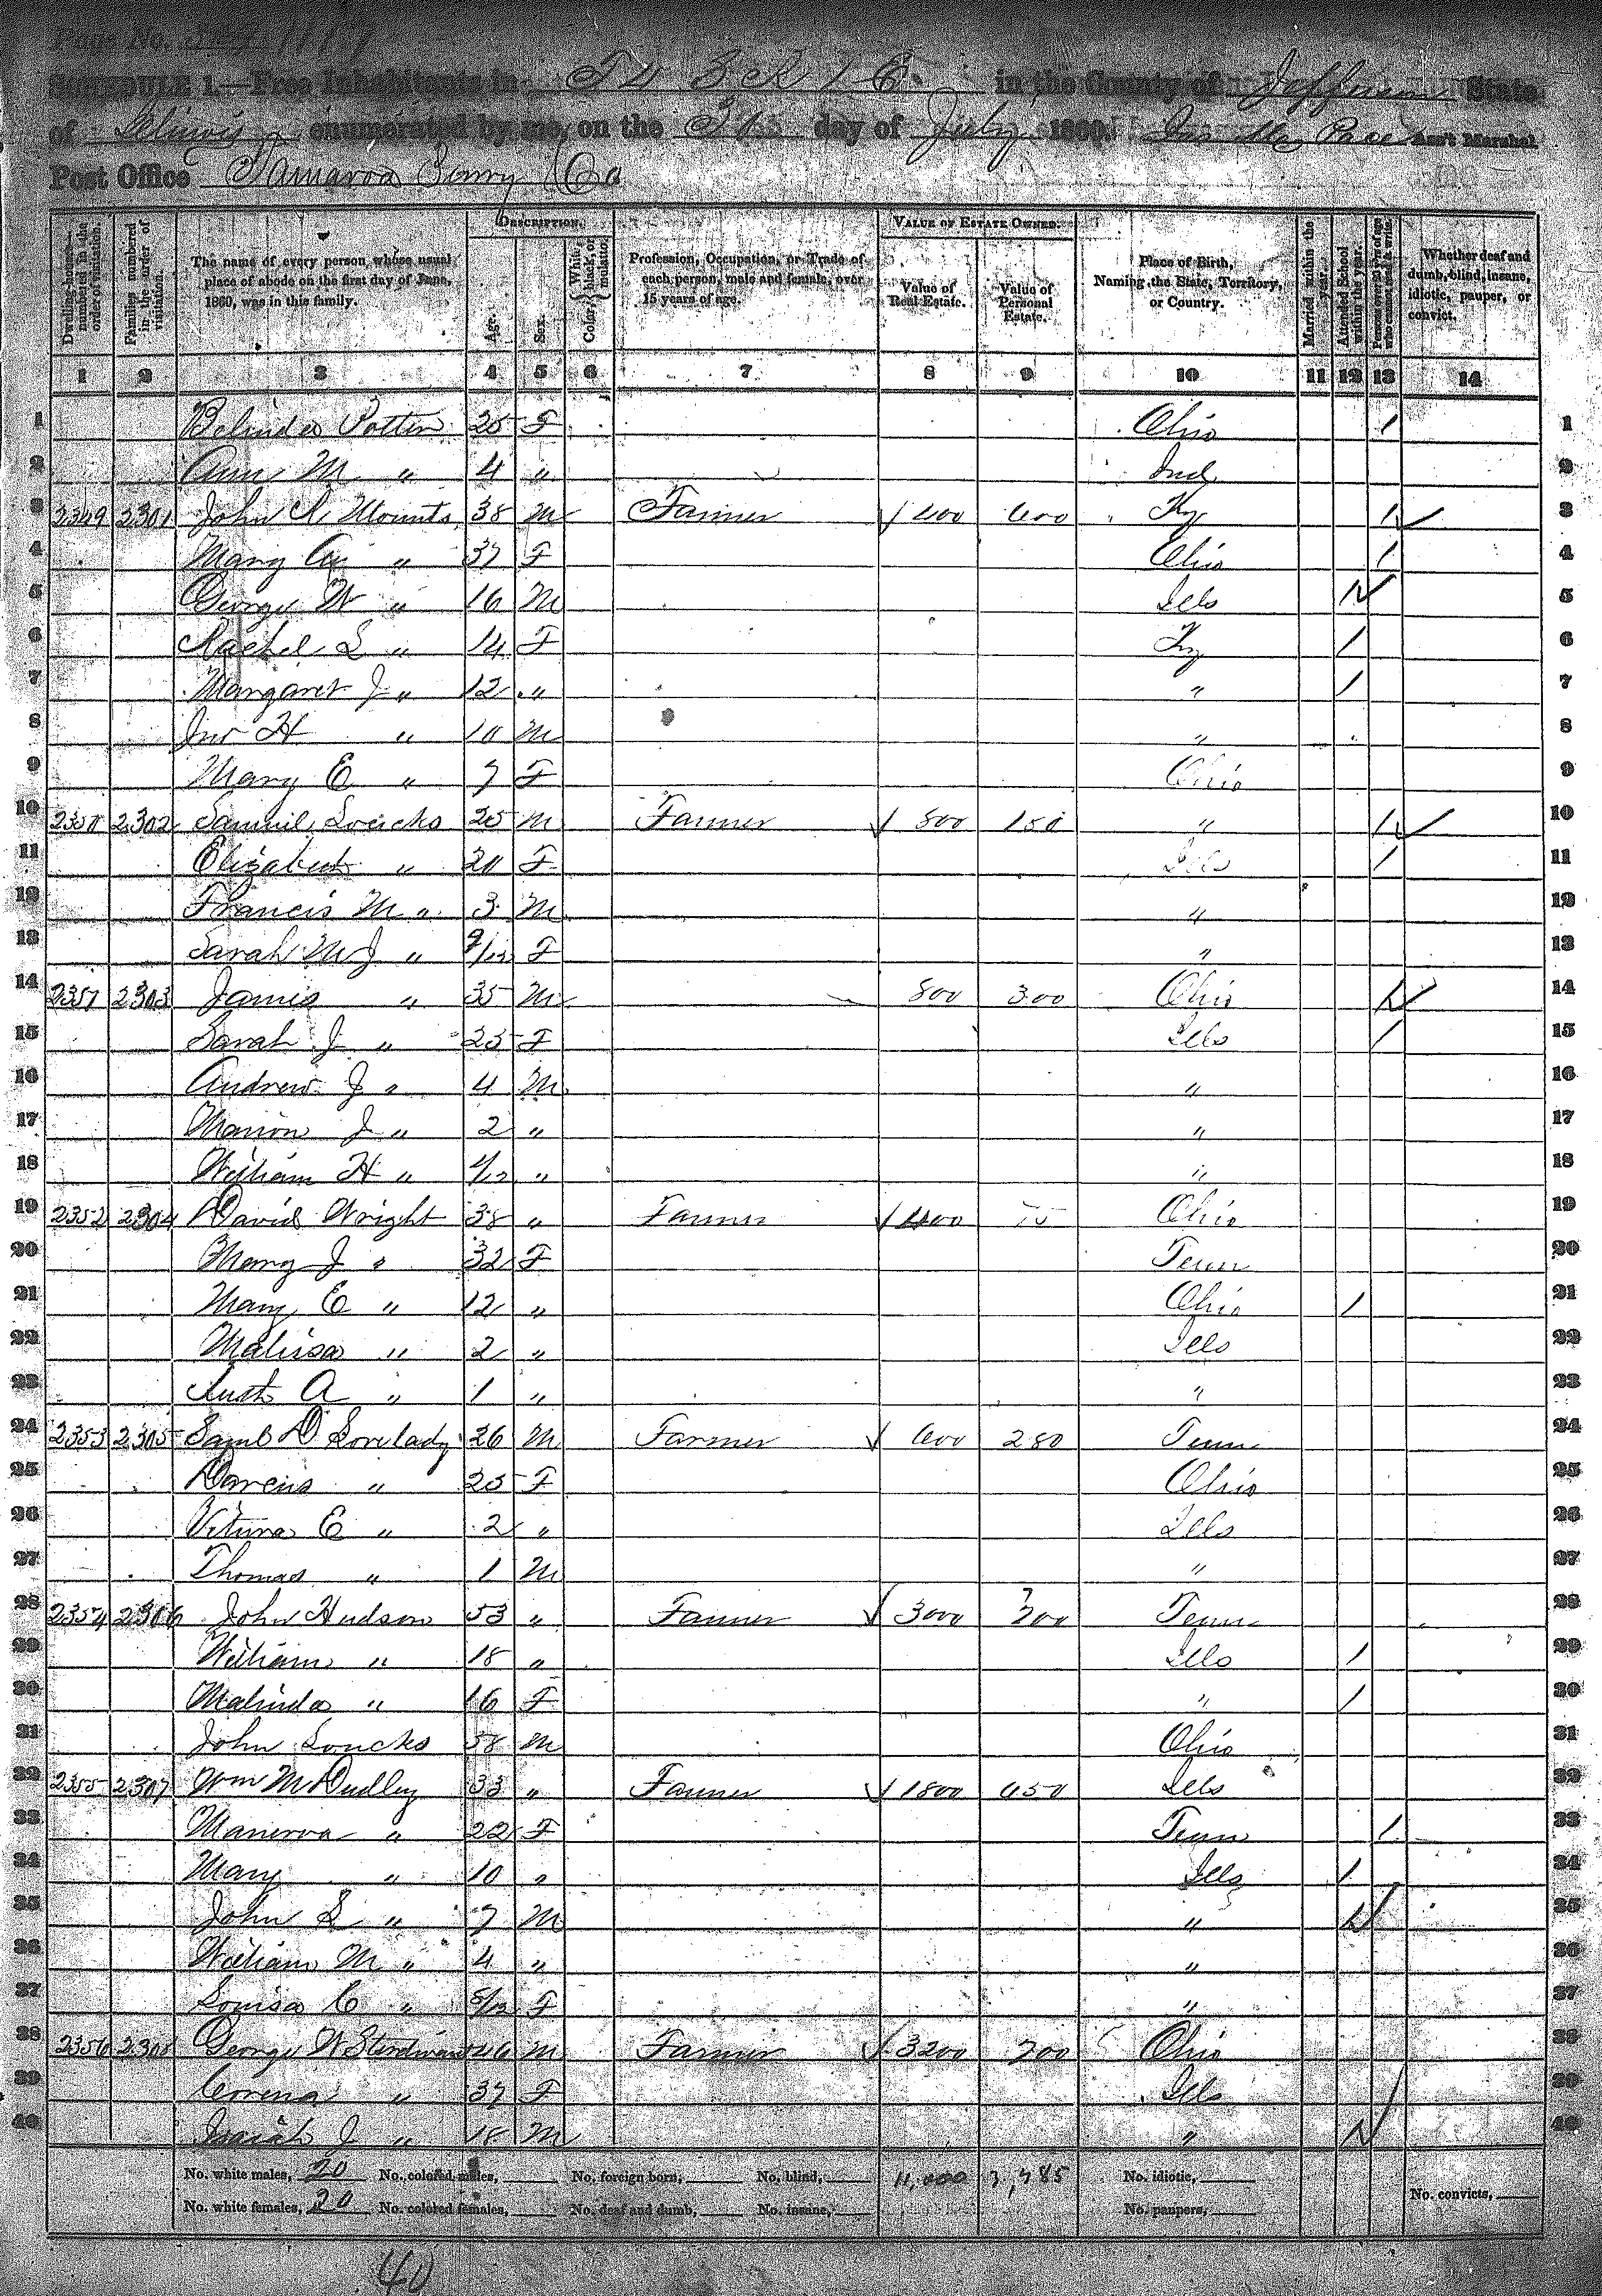 Page No.
SCHEDULE 1.—Free Inhabitants in T 4 S R 1 E in the County of Jefferson State
of Illinois enumerated by me, on the 30 day of July 1860. Pace Ass't Marshal
Post Office Tamaroa Perry Co
Dwelling-houses—numbered in the order of visitation.
Families numbered in the order of visitation.
The name of every person whose usual place of abode on the first day of June, 1860, was in this family.
DESCRIPTION.
Age.
Sex.
Color, White, black, or mulatto.
Profession, Occupation, or Trade of each person, male and female, over 15 years of age.
VALUE OF ESTATE OWNED.
Value of Real Estate.
Value of Personal Estate.
Place of Birth, Naming the State, Territory, or Country.
Married within the year.
Attended School within the year.
Persons over 20 y'rs of age who cannot read & write.
Whether deaf and dumb, blind, insane, idiotic, pauper, or convict.
1 2 3 4 5 6 7 8 9 10 11 12 13 14
1 Belinda Potter 25 F Ohio 1 1
2 Ann M " 4 " Ind 2
3 2349 2301 John Mounts 38 M Farmer 400 600 Ky 1 3
4 Mary An " 37 F Ohio 1 4
5 George W " 16 M Ills 1 5
6 Rachel L " 14 F Ky 1 6
7 Margaret J " 12 " " 1 7
8 Jno H " 10 M " 8
9 Mary E " 7 F Ohio 9
10 2350 2302 Samuel Loucks 25 M Farmer 800 150 " 1 10
11 Elizabeth " 20 F Ills 1 11
12 Francis M " 3 M " 12
13 Sarah M J " 9/12 F " 13
14 2351 2303 James " 35 M 800 300 Ohio 1 14
15 Sarah J " 25 F Ills 1 15
16 Andrew J " 4 M " 16
17 Marion J " 2 " " 17
18 William H " 4/12 " " 18
19 2352 2304 David Wright 38 " Farmer 400 75 Ohio 19
20 Mary J " 32 F Tenn 20
21 Mary E " 12 " Ohio 1 21
22 Malissa " 2 " Ills 22
23 A " 1 " " 23
24 2353 2305 Saml D Lovelady 26 M Farmer 600 280 Tenn 24
25 Darcus " 25 F Ohio 25
26 Vitura E " 2 " Ills 26
27 Thomas " 1 M " 27
28 2354 2306 John Hudson 53 " Farmer 3000 700 Tenn 28
29 William " 18 " Ills 1 29
30 Malinda " 16 F " 1 30
31 John Loucks 58 M Ohio 31
32 2355 2307 Wm M Dudley 33 " Farmer 1800 450 Ills 32
33 Manerva " 22 F Tenn 1 33
34 Mary " 10 " Ills 1 34
35 John S " 7 M " 1 35
36 William M " 4 " " 36
37 Louisa C " 5/12 F " 37
38 2356 2308 George W 46 M Farmer 3200 700 Ohio 38
39 Corena " 37 F Ills 39
40 Isaiah J " 18 M " 1 40
No. white males, 20 No. colored males, No. foreign born, No. blind, 11,000 3,785 No. idiotic,
No. white females, 20 No. colored females, No. deaf and dumb, No. insane, No. paupers, No. convicts,
40